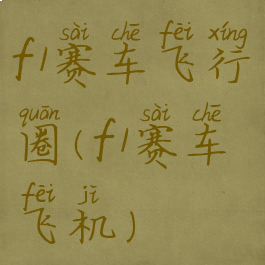 sài chē fēi xíng
f1赛车飞行
quān sài chē
圈(f1赛车
fēi jī
飞机)